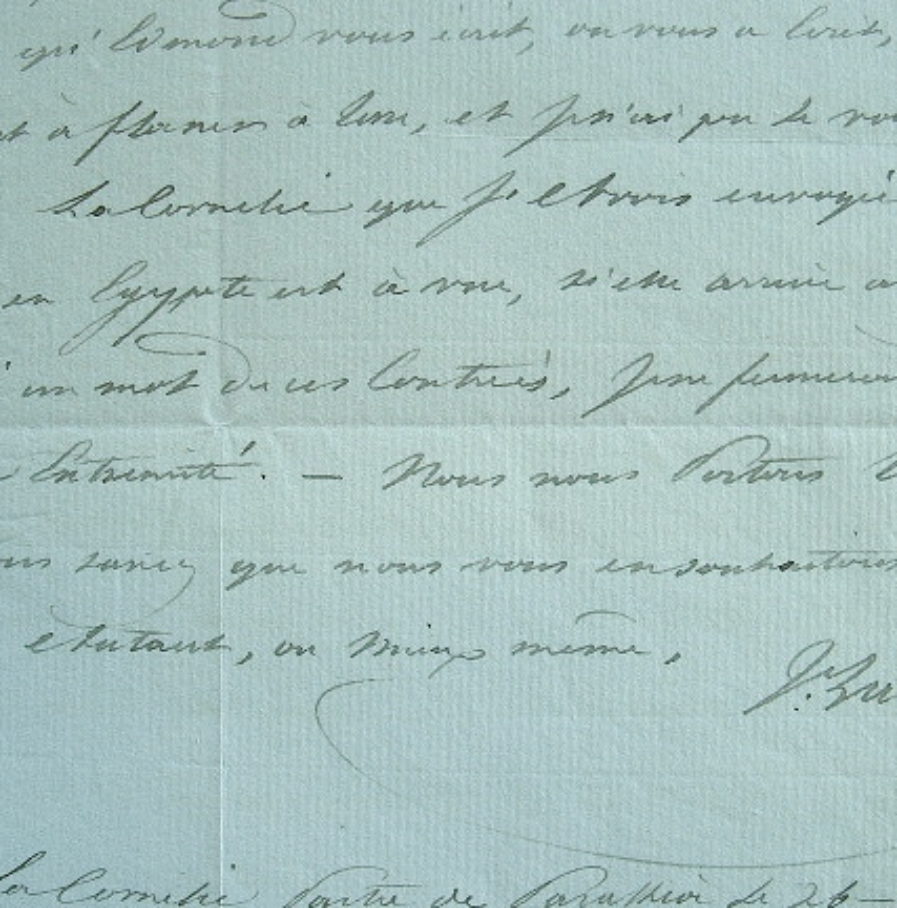 qu'Edmond vous écrit, ou vous a écrit,
à flaner à Lem, et je n'ai pu le
La Cornelie que j'Avais envoyé
en Egypte est à vue, si elle arrive
un mot de ces Contrées, je ne fermerai
Extremité. — Nous nous Portons
savez que nous vous en souhaitons
Autant, ou mieux même,
La Cornelie Partie de le 26 —